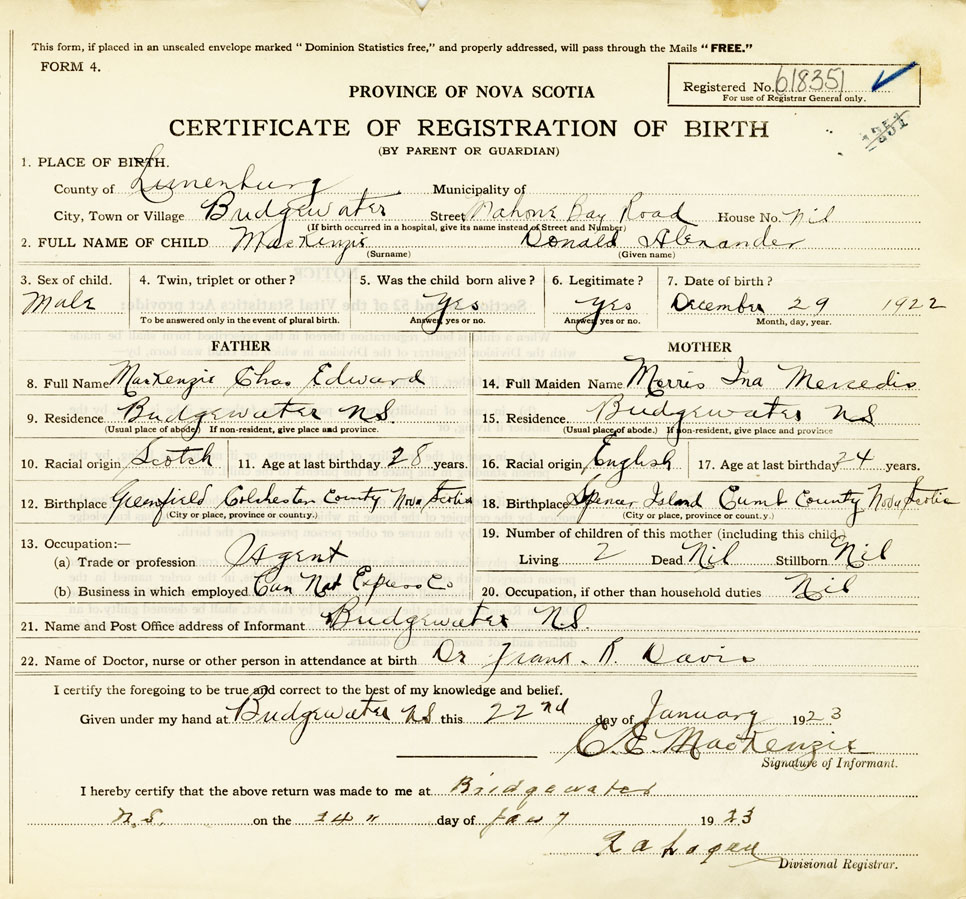 This form, if placed in an unsealed envelope marked "Dominion Statistics free," and properly addressed, will pass through the Mails "FREE."
FORM 4.
Registered No. 618351
For use of Registrar General only.
PROVINCE OF NOVA SCOTIA
CERTIFICATE OF REGISTRATION OF BIRTH
(BY PARENT OR GUARDIAN)
1. PLACE OF BIRTH.
County of Lunenburg Municipality of
City, Town or Village Bridgewater Street Mahone Bay Road House No. Nil
(If birth occurred in a hospital, give its name instead of Street and Number)
2. FULL NAME OF CHILD MacKenzie Donald Alexander
(Surname) (Given name)
3. Sex of child. 4. Twin, triplet or other? 5. Was the child born alive? 6. Legitimate? 7. Date of birth?
Male Yes Yes December 29 1922
To be answered only in the event of plural birth. Answer, yes or no. Answer, yes or no. Month, day, year.
FATHER MOTHER
8. Full Name MacKenzie Chas Edward 14. Full Maiden Name Morris Ina Mercedis
9. Residence Bridgewater N.S. 15. Residence Bridgewater N S
(Usual place of abode) If non-resident, give place and province. (Usual place of abode.) If non-resident, give place and province
10. Racial origin Scotch 11. Age at last birthday 28 years. 16. Racial origin English 17. Age at last birthday 24 years.
12. Birthplace Greenfield Colchester County Nova Scotia 18. Birthplace Spencer Island Cumb County Nova Scotia
(City or place, province or country.) (City or place, province or country.)
13. Occupation:— 19. Number of children of this mother (including this child)
(a) Trade or profession Agent Living 2 Dead Nil Stillborn Nil
(b) Business in which employed Can Nat Express Co 20. Occupation, if other than household duties Nil
21. Name and Post Office address of Informant Bridgewater N.S.
22. Name of Doctor, nurse or other person in attendance at birth Dr Frank R. Davis
I certify the foregoing to be true and correct to the best of my knowledge and belief.
Given under my hand at Bridgewater NS this 22nd day of January 1923
C. E. MacKenzie
Signature of Informant.
I hereby certify that the above return was made to me at Bridgewater
N.S. on the 24 " day of Jany 1923
Divisional Registrar.